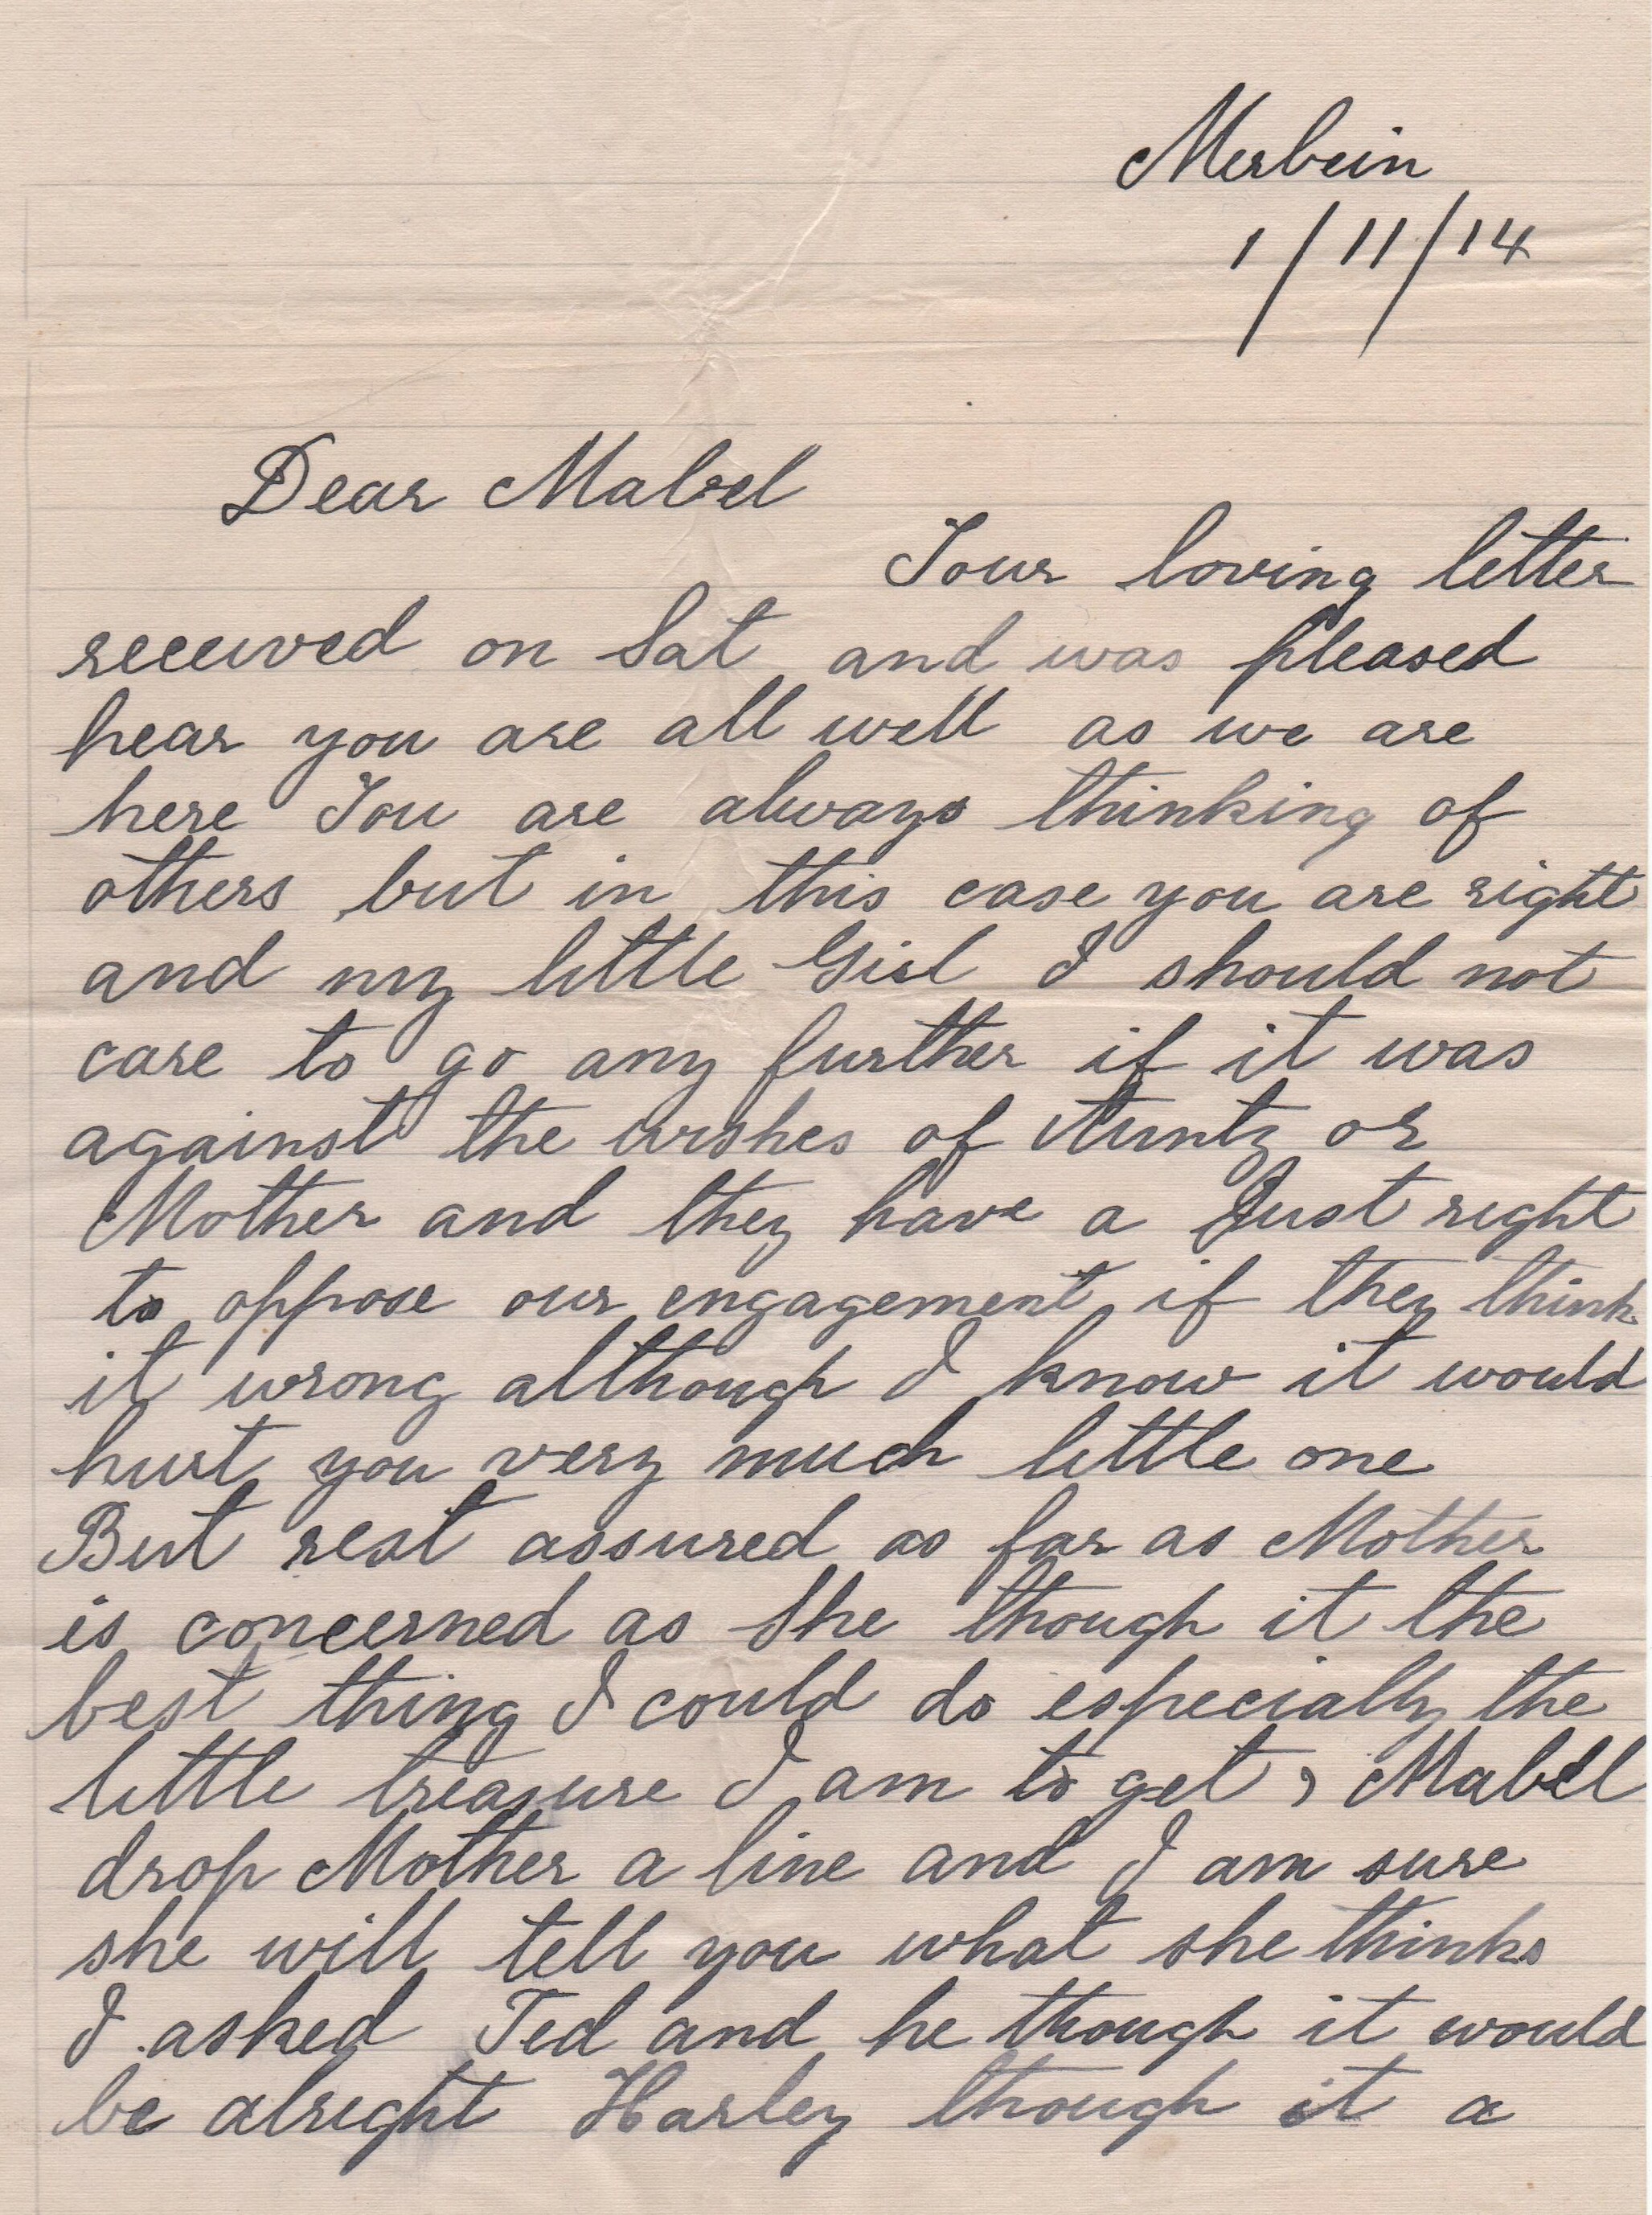 Merbein
1/11/14
Dear Mabel
Your loving letter
received on Sat and was pleased
hear you are all well as we are
here You are always thinking of
others but in this case you are right
and my little Girl I should not
care to go any further if it was
against the wishes of Aunty or
Mother and they have a Just right
to oppose our engagement if they think
it wrong although I know it would
hurt you very much little one
But rest assured as far as Mother
is concerned as She though it the
best thing I could do especially the
little treasure I am to get, Mabel
drop Mother a line and I am sure
she will tell you what she thinks
I asked Ted and he though it would
be alright Harley though it a